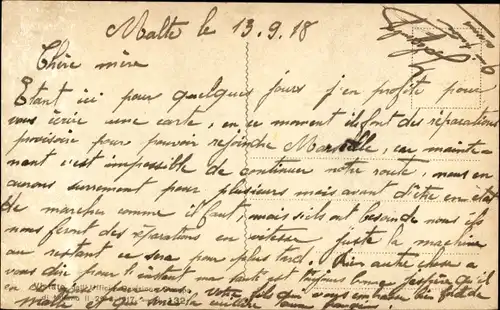 Malte le 13.9.18
Chère mère
Etant ici pour quelques jours j'en profite pour
vous écrire une carte, en ce moment ils font des réparations
provisoire pour pouvoir rejoindre Marseille, car mainte-
nant c'est impossible de continuer notre route, nous en
aurons surement pour plusieurs mois avant d'être en état
de marcher comme il faut, mais s'ils ont besoin de nous ils
nous feront des réparations en vitesse juste la machine
au restant ce sera pour plus tard. Rien autre chose a
vous dire pour l'instant ma santé est toujours bonne j'espère qu'il
en de vous. votre fils qui vous embrasse bien fort de
Malte et qui